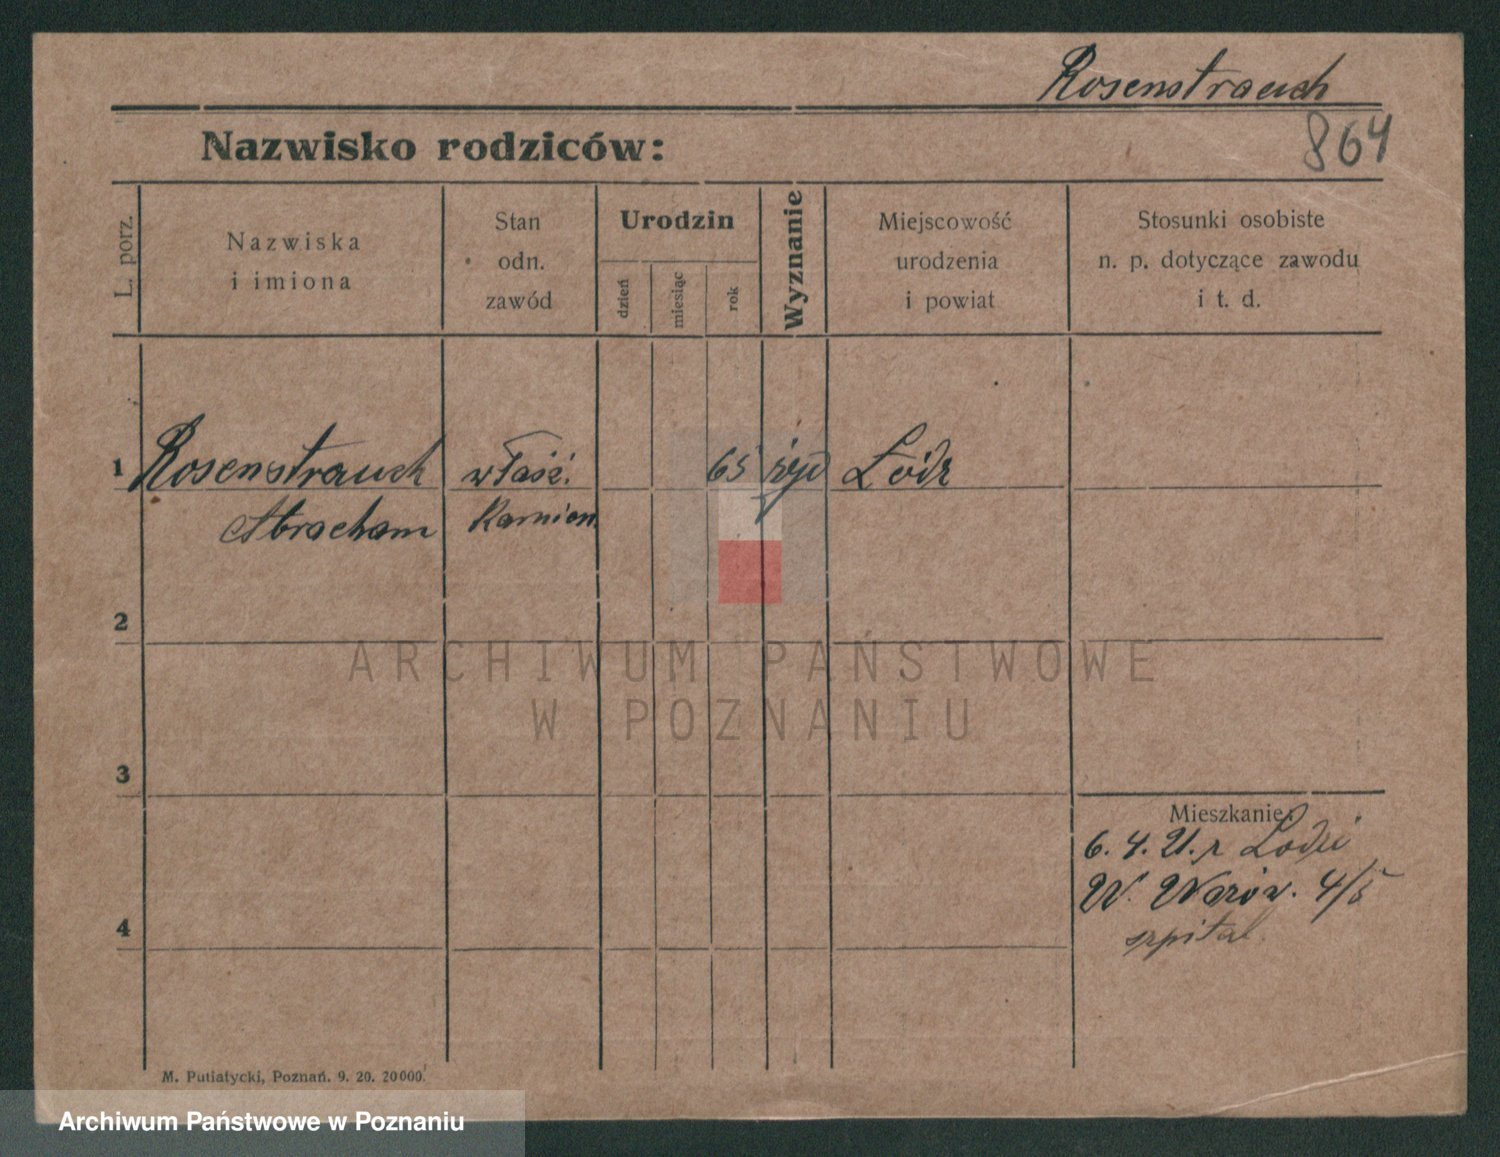 Rosenstrauch
Nazwisko rodziców:
864
L. porz.
Nazwiska
i imiona
Stan
odn.
zawód
Urodzin
dzień
miesiąc
rok
Wyznanie
Miejscowość
urodzenia
i powiat
Stosunki osobiste
n. p. dotyczące zawodu
i t. d.
1 Rosenstrauch właść. 65 żyd Łódz
Abracham Kamien.
2
ARCHIWUM PAŃSTWOWE
W POZNANIU
3
Mieszkanie:
6. 4. 21. z Łodzi
W. 4/5
szpital
4
M. Putiatycki, Poznań. 9. 20. 20000.
Archiwum Państwowe w Poznaniu